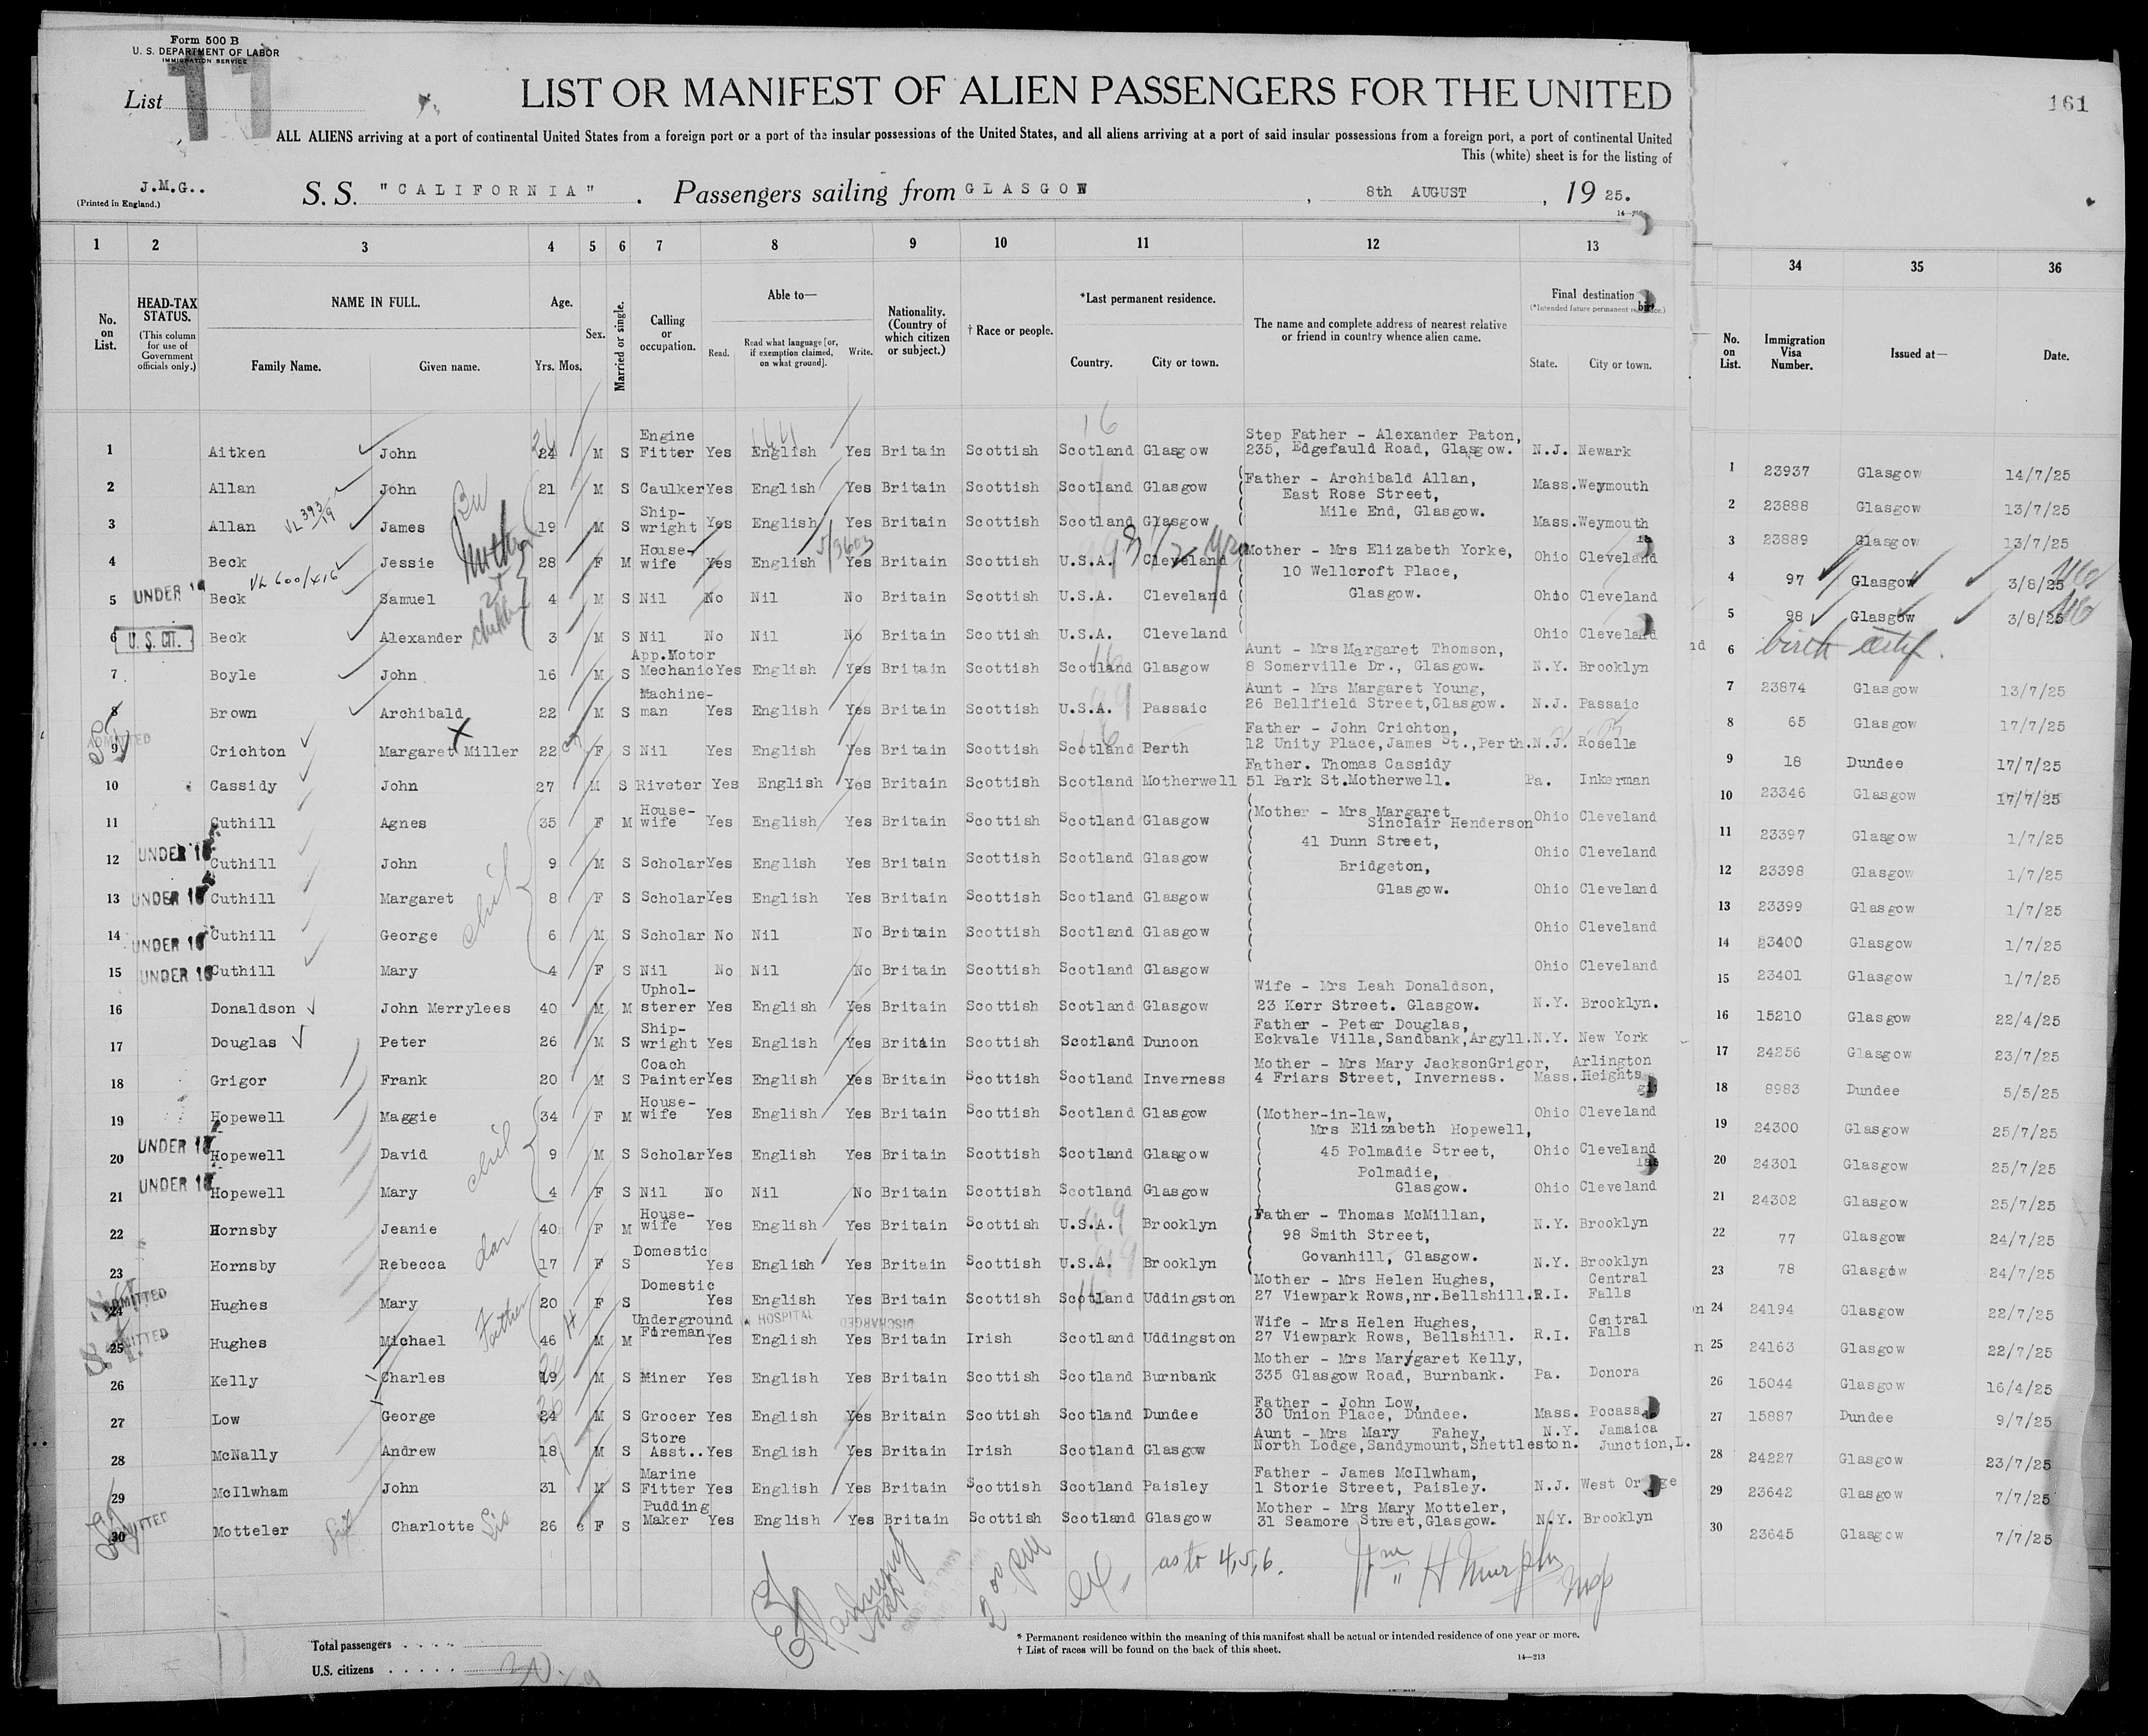 Form 500 B
U. S. DEPARTMENT OF LABOR
IMMIGRATION SERVICE
11
List
LIST OR MANIFEST OF ALIEN PASSENGERS FOR THE UNITED
161
ALL ALIENS arriving at a port of continental United States from a foreign port or a port of the insular possessions of the United States, and all aliens arriving at a port of said insular possessions from a foreign port, a port of continental United
This (white) sheet is for the listing of
J.M.G..
(Printed in England.)
S. S. "CALIFORNIA". Passengers sailing from GLASGOW, 8th AUGUST, 19 25.
1 2 3 4 5 6 7 8 9 10 11 12 13 34 35 36
No. on List. HEAD-TAX STATUS. (This column for use of Government officials only.) NAME IN FULL. Family Name. Given name. Age. Yrs. Mos. Sex. Married or single. Calling or occupation. Able to— Read. Read what language [or, if exemption claimed, on what ground]. Write. Nationality. (Country of which citizen or subject.) † Race or people. *Last permanent residence. Country. City or town. The name and complete address of nearest relative or friend in country whence alien came. Final destination State. City or town. No. on List. Immigration Visa Number. Issued at— Date.
1 Aitken John 24 M S Engine Fitter Yes English Yes Britain Scottish Scotland Glasgow Step Father - Alexander Paton, 235, Edgefauld Road, Glasgow. N.J. Newark 1 23937 Glasgow 14/7/25
2 Allan John 21 M S Caulker Yes English Yes Britain Scottish Scotland Glasgow Father - Archibald Allan, East Rose Street, Mass. Weymouth 2 23888 Glasgow 13/7/25
3 Allan James 19 M S Ship-wright Yes English Yes Britain Scottish Scotland Glasgow Mile End, Glasgow. Mass. Weymouth 3 23889 Glasgow 13/7/25
4 Beck Jessie 28 F M House-wife Yes English Yes Britain Scottish U.S.A. Cleveland Mother - Mrs Elizabeth Yorke, 10 Wellcroft Place, Ohio Cleveland 4 97 Glasgow 3/8/25
5 UNDER 16 Beck Samuel 4 M S Nil No Nil No Britain Scottish U.S.A. Cleveland Glasgow. Ohio Cleveland 5 98 Glasgow 3/8/25
6 U. S. CIT. Beck Alexander 3 M S Nil No Nil No Britain Scottish U.S.A. Cleveland Ohio Cleveland 6 birth certif.
7 Boyle John 16 M S App.Motor Mechanic Yes English Yes Britain Scottish Scotland Glasgow Aunt - Mrs Margaret Thomson, 8 Somerville Dr., Glasgow. N.Y. Brooklyn 7 23874 Glasgow 13/7/25
8 Brown Archibald 22 M S Machine-man Yes English Yes Britain Scottish U.S.A. Passaic Aunt - Mrs Margaret Young, 26 Bellfield Street,Glasgow. N.J. Passaic 8 65 Glasgow 17/7/25
9 ADMITTED Crichton Margaret Miller 22 F S Nil Yes English Yes Britain Scottish Scotland Perth Father - John Crichton, 12 Unity Place,James St.,Perth. N.J. Roselle 9 18 Dundee 17/7/25
10 Cassidy John 27 M S Riveter Yes English Yes Britain Scottish Scotland Motherwell Father. Thomas Cassidy 51 Park St.Motherwell. Pa. Inkerman 10 23346 Glasgow 17/7/25
11 Cuthill Agnes 35 F M House-wife Yes English Yes Britain Scottish Scotland Glasgow Mother - Mrs Margaret Sinclair Henderson Ohio Cleveland 11 23397 Glasgow 1/7/25
12 UNDER 16 Cuthill John 9 M S Scholar Yes English Yes Britain Scottish Scotland Glasgow 41 Dunn Street, Bridgeton, Ohio Cleveland 12 23398 Glasgow 1/7/25
13 UNDER 16 Cuthill Margaret 8 F S Scholar Yes English Yes Britain Scottish Scotland Glasgow Glasgow. Ohio Cleveland 13 23399 Glasgow 1/7/25
14 UNDER 16 Cuthill George 6 M S Scholar No Nil No Britain Scottish Scotland Glasgow Ohio Cleveland 14 23400 Glasgow 1/7/25
15 UNDER 16 Cuthill Mary 4 F S Nil No Nil No Britain Scottish Scotland Glasgow Ohio Cleveland 15 23401 Glasgow 1/7/25
16 Donaldson John Merrylees 40 M M Uphol-sterer Yes English Yes Britain Scottish Scotland Glasgow Wife - Mrs Leah Donaldson, 23 Kerr Street. Glasgow. N.Y. Brooklyn. 16 15210 Glasgow 22/4/25
17 Douglas Peter 26 M S Ship-wright Yes English Yes Britain Scottish Scotland Dunoon Father - Peter Douglas, Eckvale Villa,Sandbank,Argyll. N.Y. New York 17 24256 Glasgow 23/7/25
18 Grigor Frank 20 M S Coach Painter Yes English Yes Britain Scottish Scotland Inverness Mother - Mrs Mary JacksonGrigor, 4 Friars Street, Inverness. Mass. Arlington Heights 18 8983 Dundee 5/5/25
19 Hopewell Maggie 34 F M House-wife Yes English Yes Britain Scottish Scotland Glasgow (Mother-in-law, Mrs Elizabeth Hopewell, Ohio Cleveland 19 24300 Glasgow 25/7/25
20 UNDER 16 Hopewell David 9 M S Scholar Yes English Yes Britain Scottish Scotland Glasgow 45 Polmadie Street, Polmadie, Ohio Cleveland 20 24301 Glasgow 25/7/25
21 UNDER 16 Hopewell Mary 4 F S Nil No Nil No Britain Scottish Scotland Glasgow Glasgow. Ohio Cleveland 21 24302 Glasgow 25/7/25
22 Hornsby Jeanie 40 F M House-wife Yes English Yes Britain Scottish U.S.A. Brooklyn Father - Thomas McMillan, 98 Smith Street, N.Y. Brooklyn 22 77 Glasgow 24/7/25
23 Hornsby Rebecca 17 F S Domestic Yes English Yes Britain Scottish U.S.A. Brooklyn Govanhill, Glasgow. N.Y. Brooklyn 23 78 Glasgow 24/7/25
24 ADMITTED Hughes Mary 20 F S Domestic Yes English Yes Britain Scottish Scotland Uddingston Mother - Mrs Helen Hughes, 27 Viewpark Rows,nr.Bellshill. R.I. Central Falls 24 24194 Glasgow 22/7/25
25 ADMITTED Hughes Michael Father 46 M M Underground Foreman HOSPITAL DISCHARGED Yes English Yes Britain Irish Scotland Uddingston Wife - Mrs Helen Hughes, 27 Viewpark Rows, Bellshill. R.I. Central Falls 25 24163 Glasgow 22/7/25
26 Kelly Charles 19 M S Miner Yes English Yes Britain Scottish Scotland Burnbank Mother - Mrs Mary/garet Kelly, 335 Glasgow Road, Burnbank. Pa. Donora 26 15044 Glasgow 16/4/25
27 Low George 24 M S Grocer Yes English Yes Britain Scottish Scotland Dundee Father - John Low, 30 Union Place, Dundee. Mass. Pocass 27 15887 Dundee 9/7/25
28 McNally Andrew 18 M S Store Asst.. Yes English Yes Britain Irish Scotland Glasgow Aunt - Mrs Mary Fahey, North Lodge,Sandymount,Shettleston. N.Y. Jamaica Junction,L. 28 24227 Glasgow 23/7/25
29 McIlwham John 31 M S Marine Fitter Yes English Yes Britain Scottish Scotland Paisley Father - James McIlwham, 1 Storie Street, Paisley. N.J. West Orange 29 23642 Glasgow 7/7/25
30 ADMITTED Motteler Charlotte 26 F S Pudding Maker Yes English Yes Britain Scottish Scotland Glasgow Mother - Mrs Mary Motteler, 31 Seamore Street,Glasgow. N.Y. Brooklyn 30 23645 Glasgow 7/7/25
as to 4,5,6.
Total passengers
U.S. citizens
* Permanent residence within the meaning of this manifest shall be actual or intended residence of one year or more.
† List of races will be found on the back of this sheet.
14—213